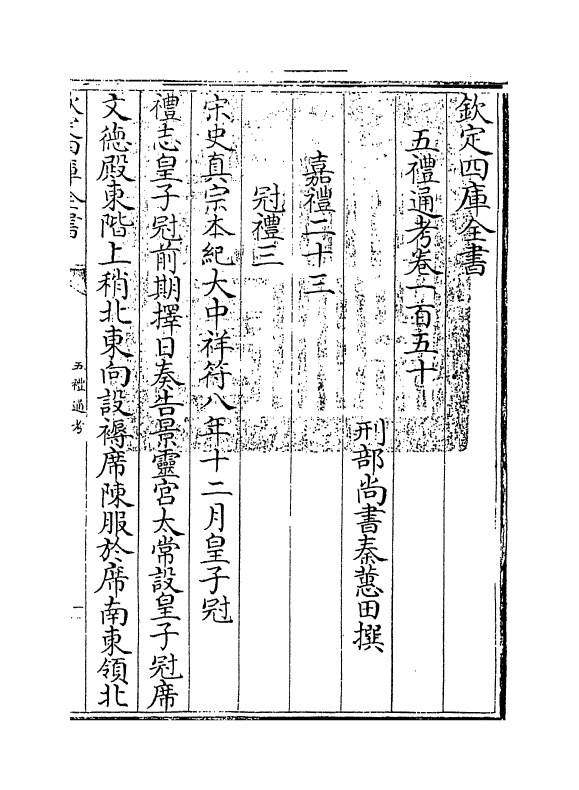 欽定四庫全書
五禮通考卷一百五十
刑部尚書秦蕙田撰
嘉禮二十三
冠禮三
宋史真宗本紀大中祥符八年十二月皇子冠
禮志皇子冠前期擇日奏告景靈宮太常設皇子冠席
文德殿東階上稍北東向設褥席陳服於席南東領北
欽定四庫全書
五禮通考
一